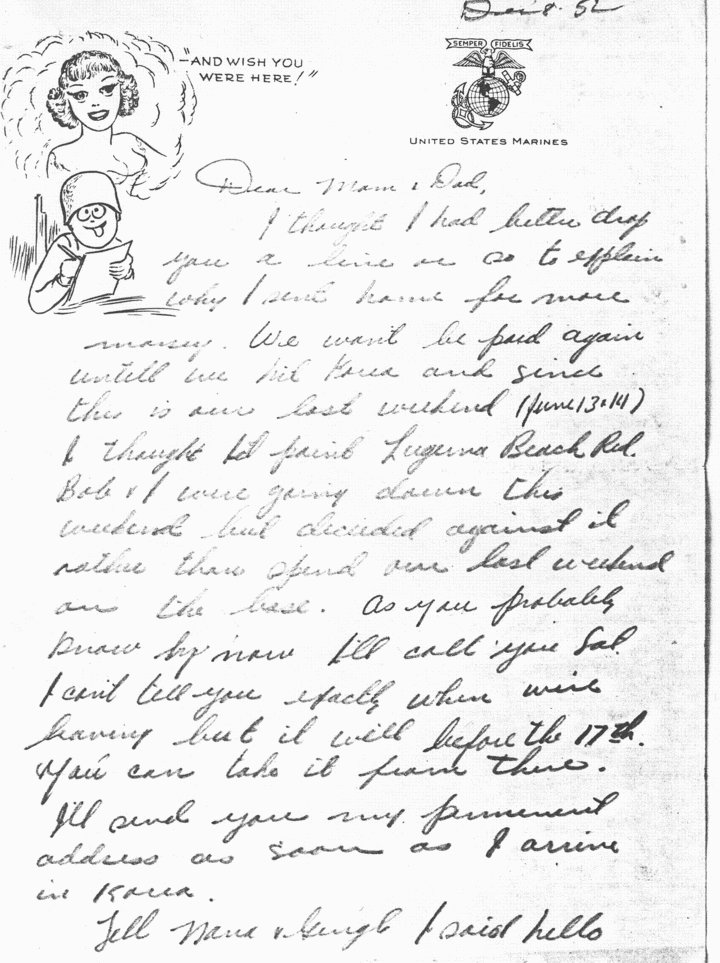 52
"AND WISH YOU
WERE HERE!"
SEMPER FIDELIS
UNITED STATES MARINES
Dear Mom & Dad,
I thought I had better drop
you a line or so to explain
why I sent home for more
money. We won't be paid again
untill we hit Korea and since
this is our last weekend (June 13 & 14)
I thought I'd paint Laguna Beach Red.
Bob & I were going down this
weekend but decided against it
rather than spend our last weekend
on the base. As you probably
know by now I'll call you Sat.
I can't tell you exactly when we're
leaving but it will before the 17th.
You can take it from there.
I'll send you my perminent
address as soon as I arrive
in Korea.
Tell Nana & I said hello